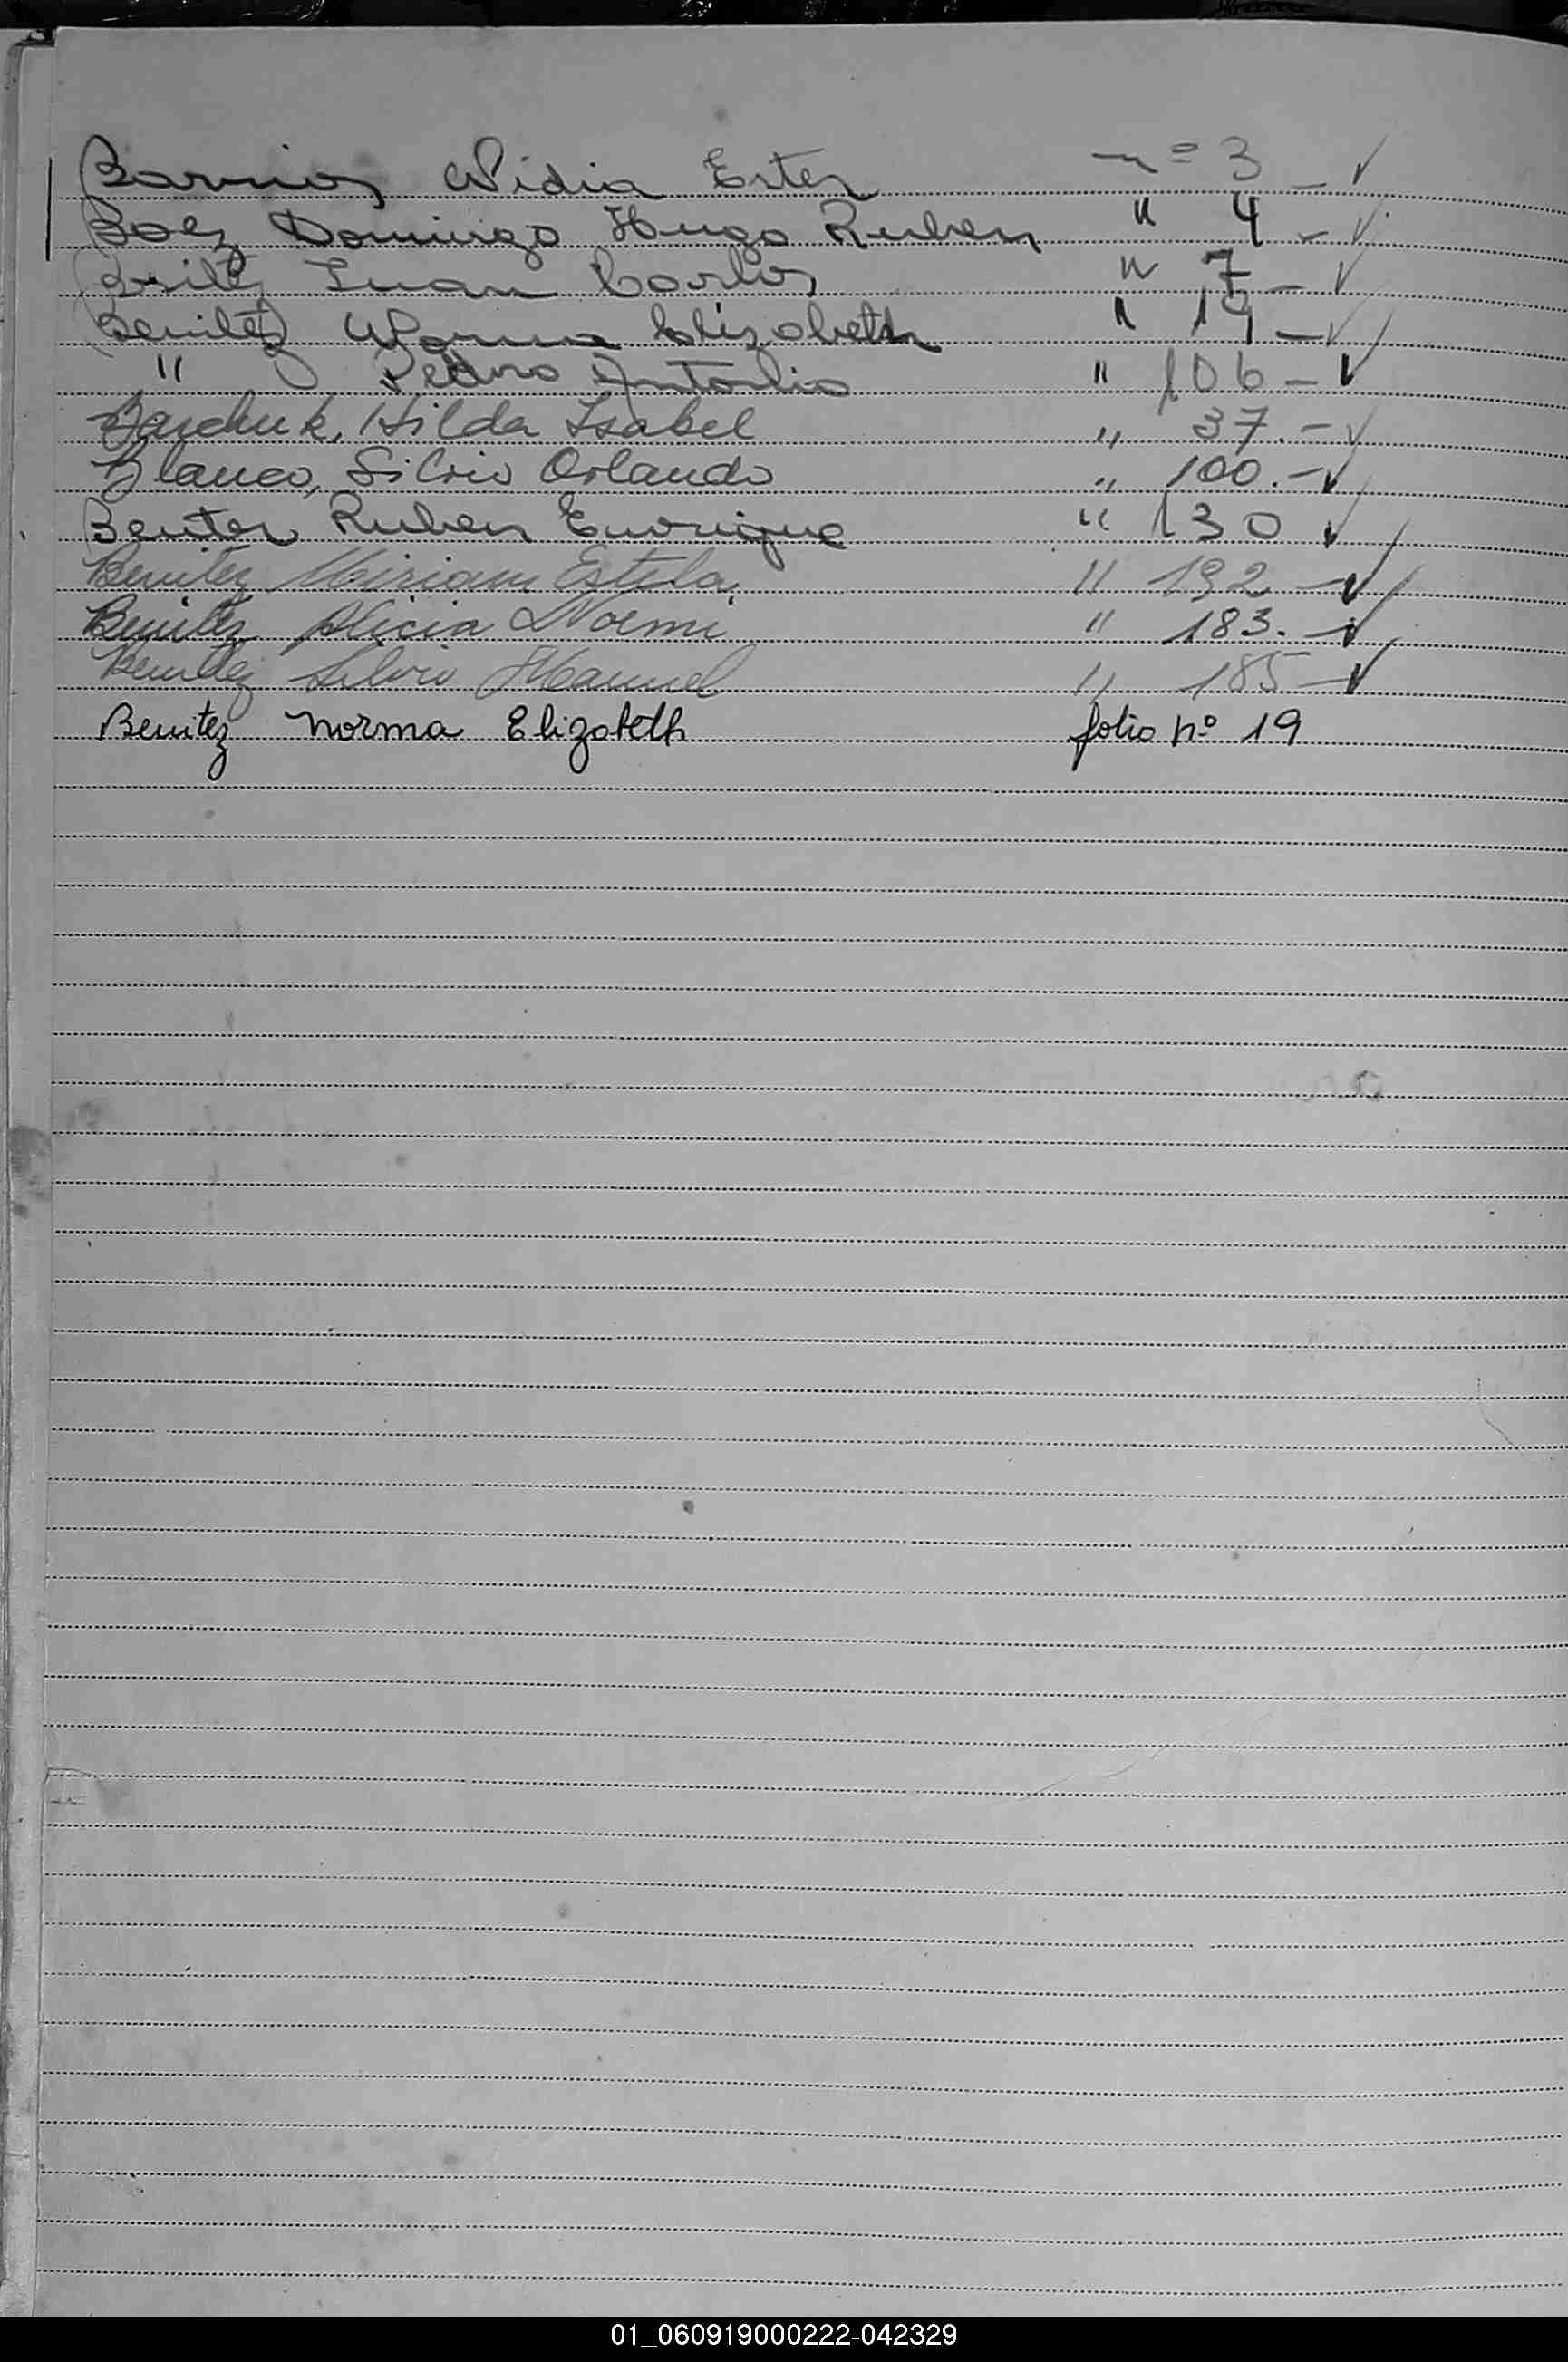 Barrios Nidia Ester nº 3 - ✓
Baez Domingo Hugo Ruben " 4 - ✓
Britez Juan Carlos " 7 - ✓
Benitez Norma Elizabeth " 19 - ✓
" Pedro Antonio " 106 - ✓
Hilda Isabel " 37.- ✓
Blanco, Silvio Orlando " 100.- ✓
Benitez Ruben Enrique " 130 ✓
Benitez Miriam Estela " 192 - ✓
Benitez Alicia Noemi " 183. - ✓
Benitez Silvio Manuel " 185 - ✓
Benitez Norma Elizabeth folio nº 19
01_060919000222-042329